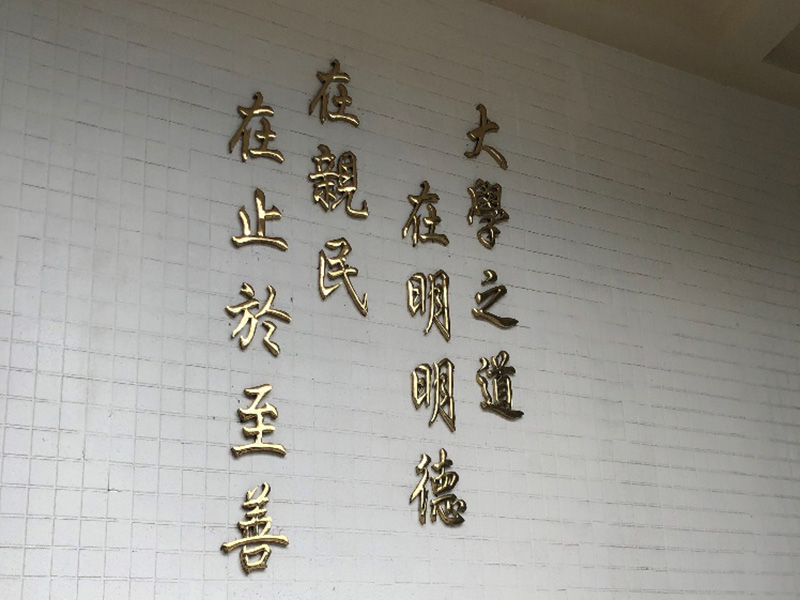 大學之道
在明明德
在親民
在止於至善